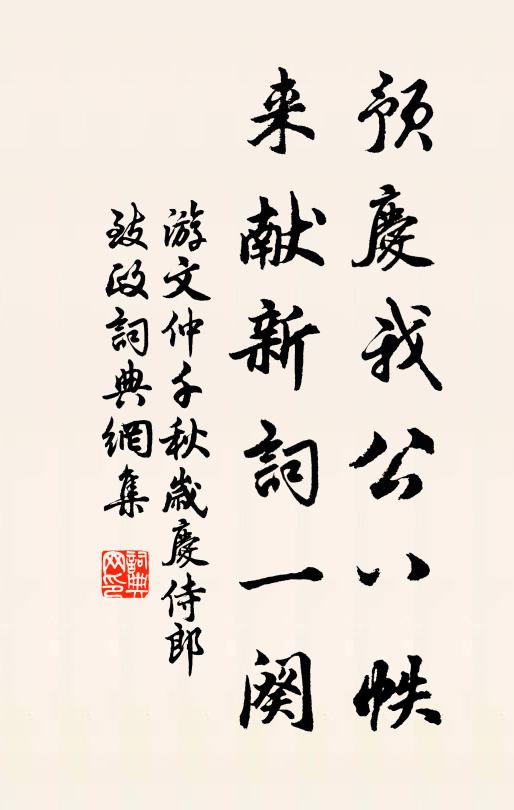 預慶我公八帙
来献新詞一闋
游文仲千秋歲慶侍郎
致政詞典網集
詞典
网印